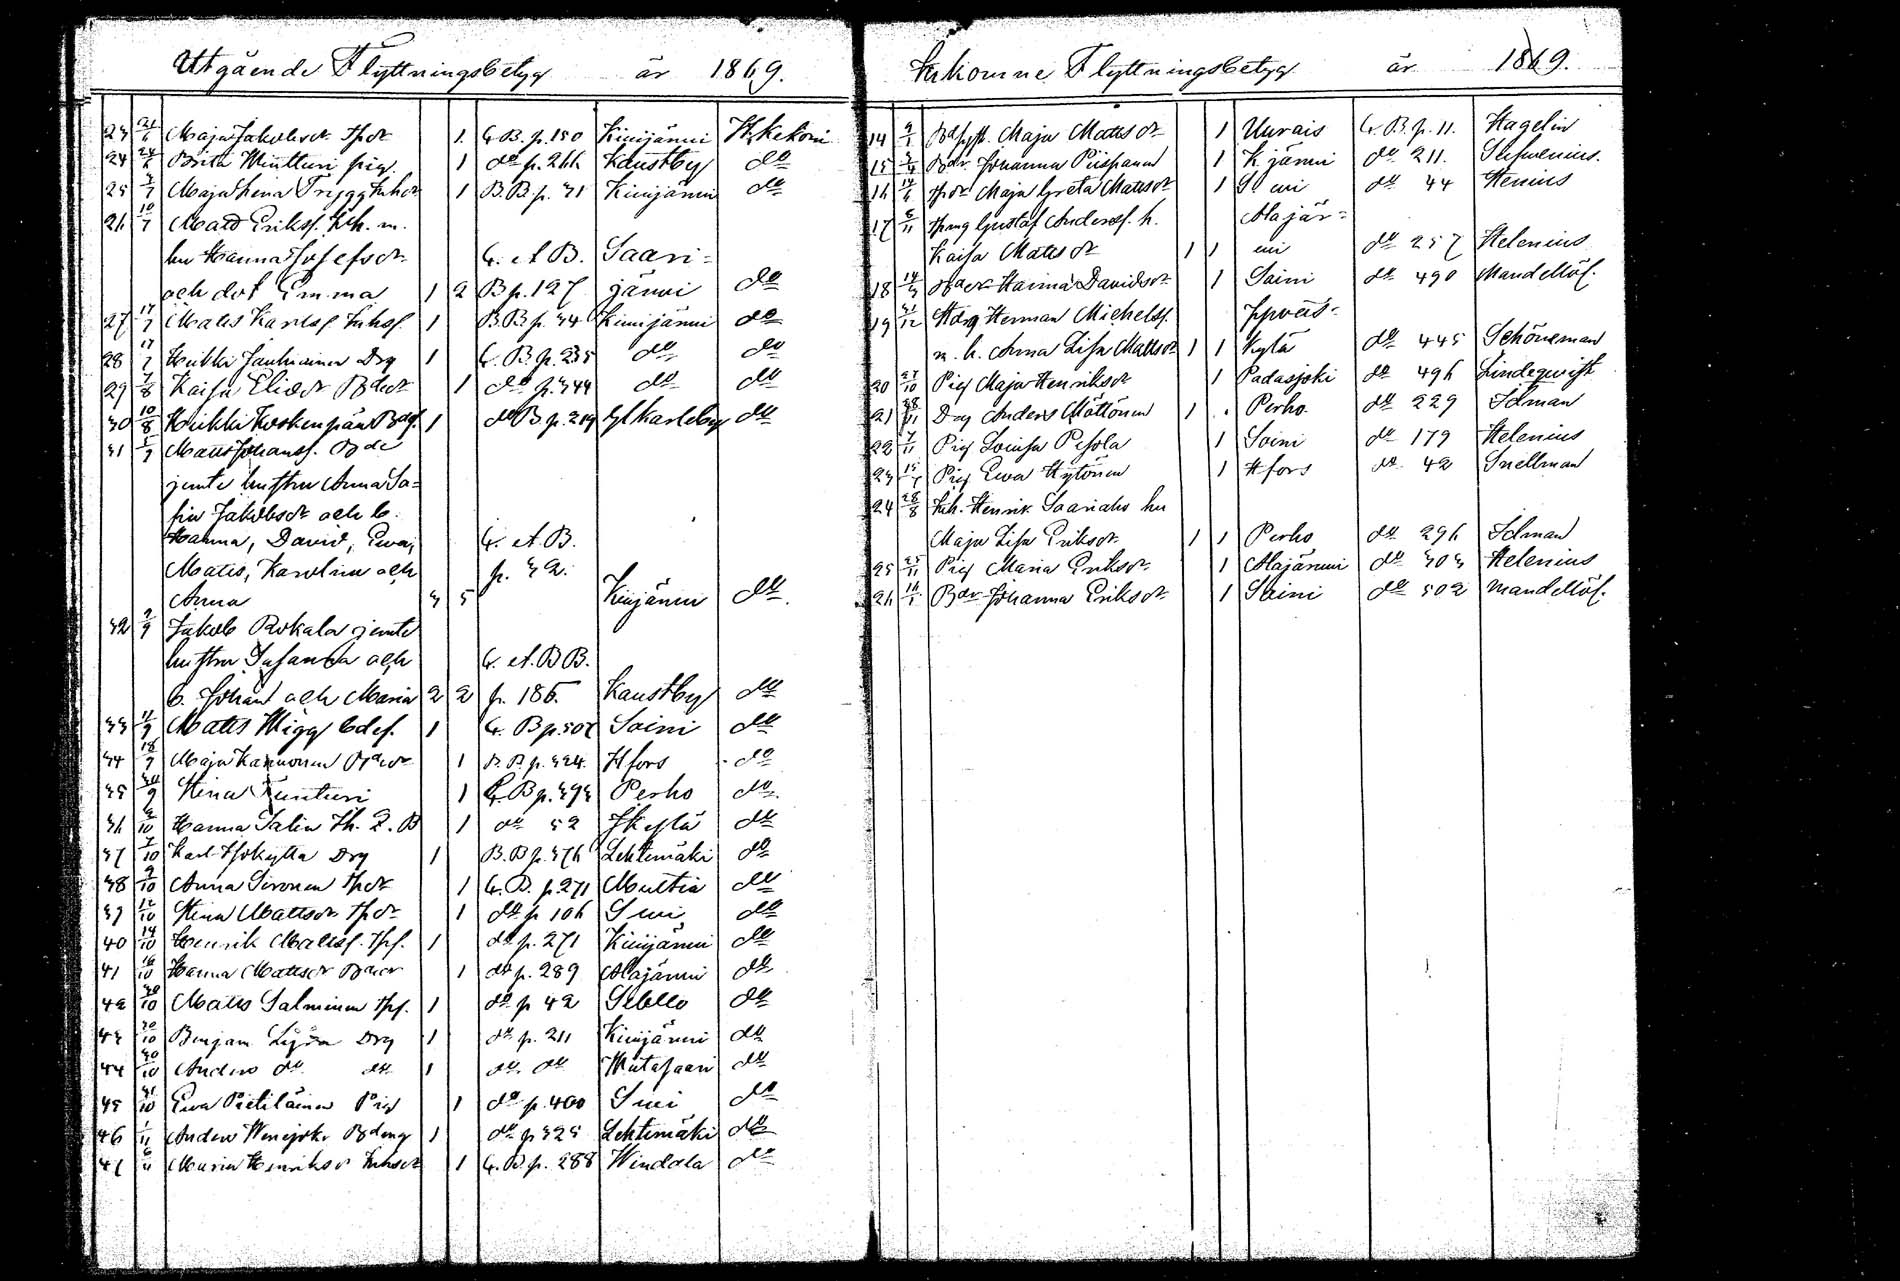 Utgående Flyttningsbetyg år 1869.
23 21/6 Maja Jakobsdr Tpdr 1. C.B. p. 150 Kivijärvi H. Kekoni
24 24/6 Brita Hutturi pig. 1 do p. 266 Kaustby do
25 3/7 Maja Lena Trygg Inhdr 1 B.B p. 31 Kivijärvi do
26 10/7 Mats Eriksf. Inh. m.
hu Hanna Josefsdr C. et B. Saari-
och dot Emma 1 2 B p. 127 järvi do
27 17/7 Matts Karlsf Inhsf. 1 B.B p. 34 Kivijärvi do
28 17/7 Heikki Jauhiainen Drg 1 C. B. p. 235 do do
29 7/8 Kaisa Eliasdr Bdedr 1 do p. 344 do do
30 10/8 Heikki Koskenpää Bdsf. 1 do B. p. 219 Gl Karleby do
31 1/9 Matts Johansf. Bde
jemte hustru Anna So-
fia Jakobsdr och b.
Hanna, David, Ewa, C. et B.
Matts, Karolina och p. 32.
Anna 3 5 Kivijärvi do.
32 2/9 Jakob Rokala jemte
hustru Susanna och C. et. B B.
b. Johan och Maria 2 2 p. 186. Kaustby do
33 11/9 Matts Wigg 1 C. B p. 507 Soini do
34 18/9 Maja Kannonen 1 B. B p. 324. Hfors do
35 30/9 Stina Tunturi 1 C. B p. 393 Perho do.
36 2/10 Hanna Salin 1 do 52 do
37 7/10 Karl Isokytta Drg 1 B. B p. 376 Lehtimäki do
38 9/10 Anna Sironen Tpdr 1 C. B. p. 271 Multia do
39 12/10 Stina Mattsdr Tpdr 1 do p 106 do
40 14/10 Henrik Mattsf. Tpf. 1 do p. 271 Kivijärvi do
41 16/10 Hanna Mattsdr 1 do p. 289 Alajärvi do
42 20/10 Matts Salminen Tpf. 1 do p 42 do
43 20/10 Benjam. Drg 1 do p. 211 Kivijärvi do
44 30/10 Anders do do 1 do. do do
45 31/10 Ewa Pietiläinen Pig 1 do p. 400 do
46 1/11 Anders 1 do p 325 Lehtimäki do
47 6/11 Maria Henriksdr Inhsdr 1 C. B. p. 288 Windala do
Inkomne Flyttningsbetyg år 1869.
14 Maja Mattsdr 1 Uurais C. B. p. 11. Hagelin
15 Johanna Piispanen 1 K järvi do 211.
16 Tpdr Maja Greta Mattsdr 1 do 44 Stenius
17 6/11 Gustaf Andersf. h. Alajär-
Kaisa Mattsdr 1 1 vi do 257 Helenius
18 Hanna Davidsdr 1 Soini do 490 Mandellöf.
19 31/12 Herman Michelsf. Jyväs-
m. h. Anna Lisa Mattsdr 1 1 kylä do 445 Schöneman
20 27/10 Pig Maja Henriksdr 1 Padasjoki do 496 Lindeqvist
21 28/11 Drg Anders Möttönen 1 . Perho. do 229 Idman
22 7/11 Pig Lovisa Pesola 1 Soini do 179 Helenius
23 Pig Ewa Hytönen 1 Hfors do 42 Snellman
24 28/8 Inh. Henrik Saariaho hu
Maja Lisa Eriksdr 1 1 Perho do 296 Idman
25 25/11 Pig Maria Eriksdr 1 Alajärvi do 303 Helenius
26 Johanna Eriksdr 1 Soini do 502 Mandellöf.